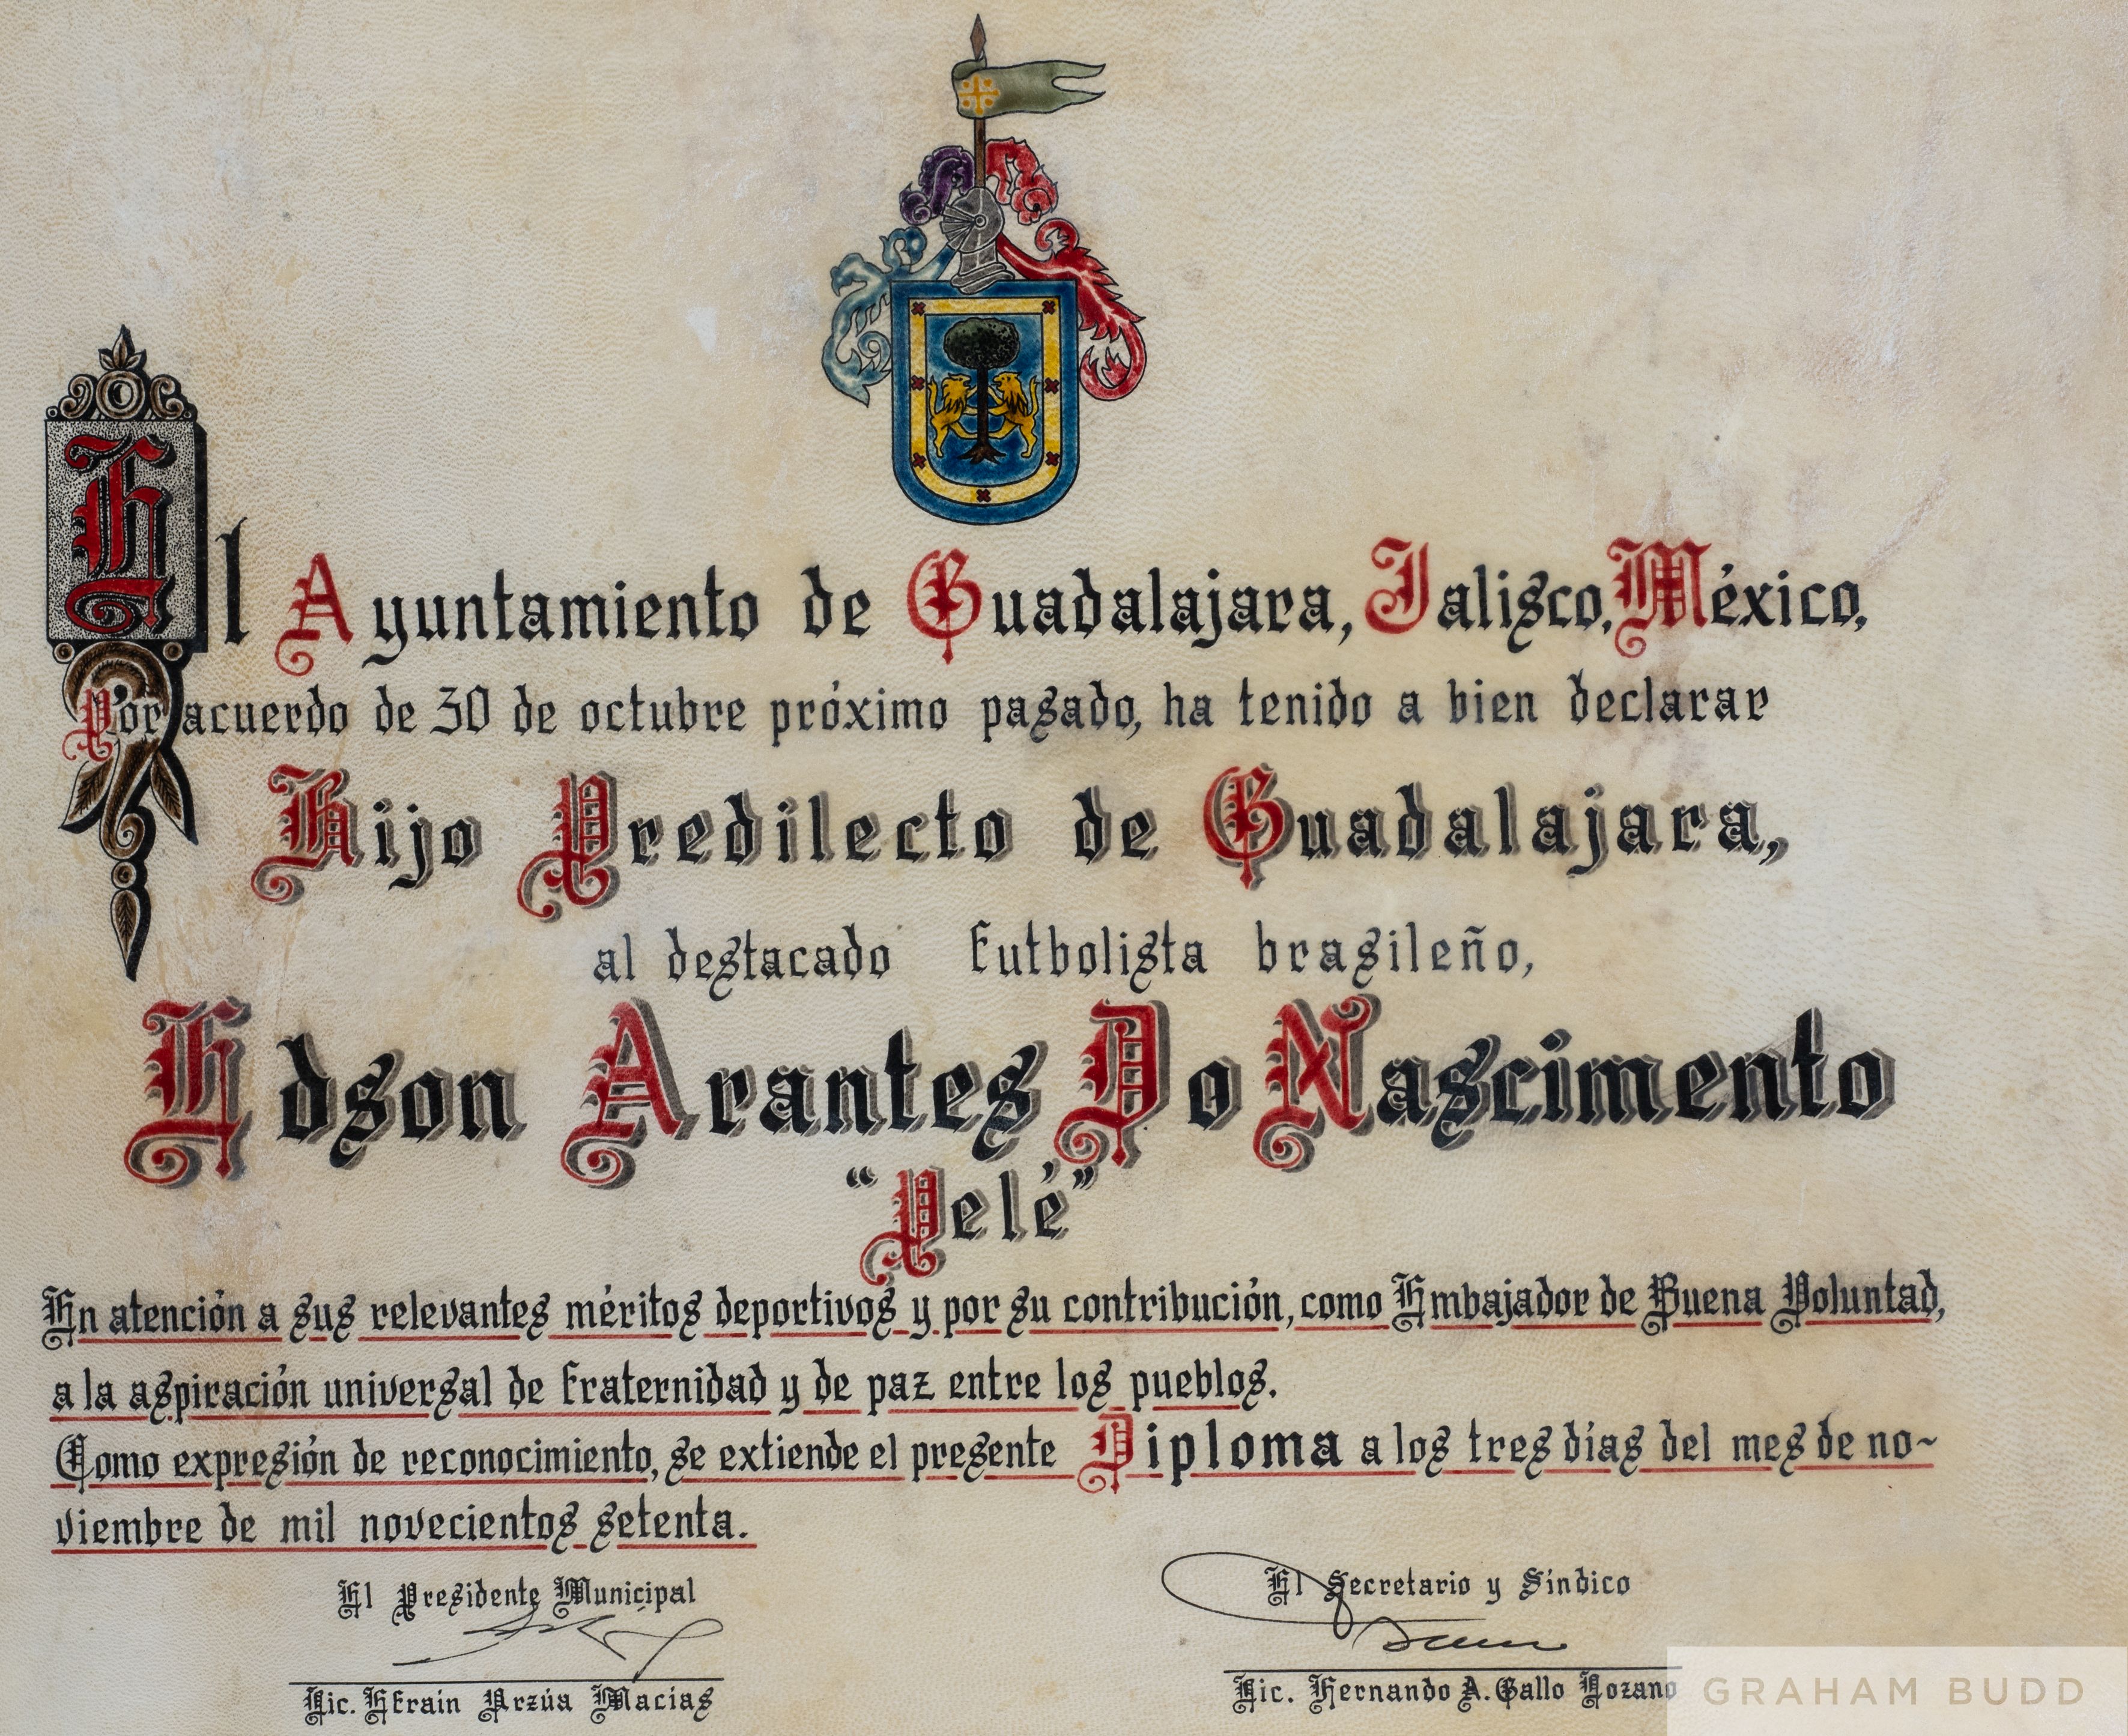 El Ayuntamiento de Guadalajara, Jalisco, México,
Por acuerdo de 30 de octubre próximo pasado, ha tenido a bien declarar
Hijo Predilecto de Guadalajara,
al destacado futbolista brasileño,
Edson Arantes Do Nascimento
“Pelé”
En atención a sus relevantes méritos deportivos y por su contribución, como Embajador de Buena Voluntad,
a la aspiración universal de fraternidad y de paz entre los pueblos.
Como expresión de reconocimiento, se extiende el presente Diploma a los tres días del mes de no~
viembre de mil novecientos setenta.
El Presidente Municipal
Lic. Efraín Urzúa Macías
El Secretario y Síndico
Lic. Hernando A. Gallo Lozano
GRAHAM BUDD